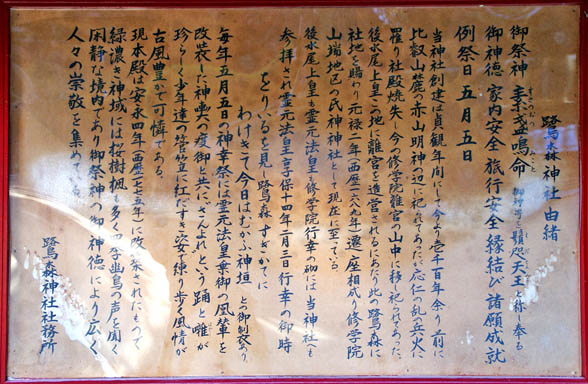 鷺森神社由緒
御祭神 素盞嗚命 御神号を頸咫天王と称し奉る
すさのおのみこと
御神徳 家内安全 旅行安全 縁結び 諸願成就
例祭日 五月五日
当神社創建は貞観年間にして今より壱千百年余り前に
比叡山麓の赤山明神の辺に祀られてあったが応仁の乱兵火に
罹り社殿焼失、今の修学院離宮の山中に移し祀られてあった、
後水尾上皇この地に離宮を造営されるにあたり此の鷺森に
社地を賜わり元禄二年(西歴一六八九年)遷座相成り修学院
山端地区の氏神神社として現在に至っている。
後水尾上皇も霊元法皇も修学院行幸の砌には当神社へも
参拝され霊元法皇享保十四年二月三日行幸の御時
をりいるを見し鷺森すぎがてに
わけきて今日はむかふ神垣 との御製あり、
毎年五月五日の神幸祭には霊元法皇乗御の鳳輦を
改装した神輿の渡御と共に、さんよれという踊と囃が
珍らしく少年達の菅笠に紅だすき姿で練り歩く風情が
古風豊かで可憐である。
現本殿は安永四年(西歴一七七五年)に改築されたもので
緑濃き神域には桜樹楓も多く四季幽鳥の声を聞く
閑静な境内であり御祭神の御神徳により広く
人々の崇敬を集めている。
鷺森神社社務所